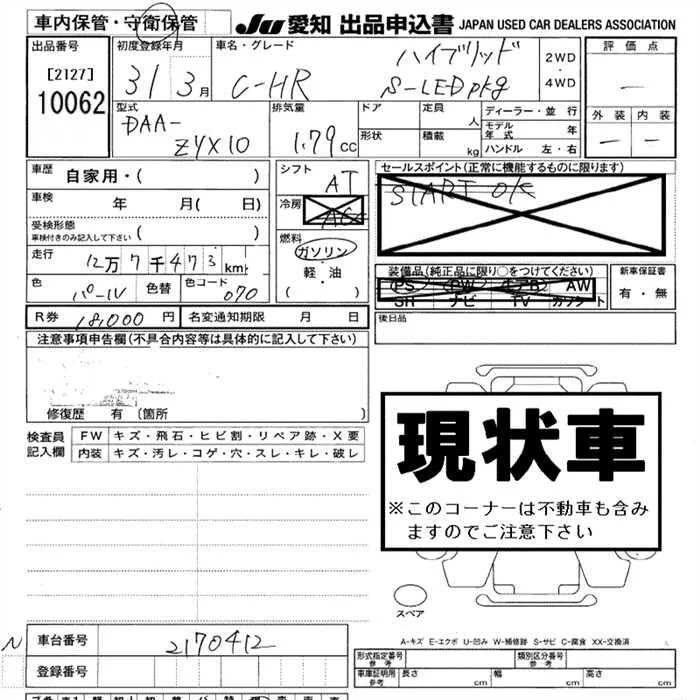 車内保管・守衛保管
JU 愛知 出品申込書 JAPAN USED CAR DEALERS ASSOCIATION
出品番号
[2127]
10062
初度登録年月
31 3月
車名・グレード
ハイブリッド
C-HR S-LED pkg
2WD
・
4WD
評価点
―
外装 内装
― ―
型式
DAA-
ZYX10
排気量
1.79cc
ドア
形状
定員 人
積載 kg
ディーラー・並行
モデル年式 年
ハンドル 左・右
車歴 自家用・( )
車検 年 月( 日)
受検形態
車検付きのみ記入して下さい ( )
走行 12万7千473km
色 パール 色替 色コード 070
シフト AT
冷房 AC
燃料
ガソリン
軽・油
( )
セールスポイント(正常に機能するものに限ります)
START o/c
装備品(純正品に限り○をつけてください)
PS PW エアB AW
SH ナビ TV カセット
新車保証書
有・無
R券 18,000円 名変通知期限 月 日
後日品
注意事項申告欄(不具合内容等は具体的に記入して下さい)
修復歴 有 〔箇所 〕
検査員記入欄
FW キズ・飛石・ヒビ割・リペア跡・X要
内装 キズ・汚レ・コゲ・穴・スレ・キレ・破レ
現状車
※このコーナーは不動車も含み
ますのでご注意下さい
スペア
A-キズ E-エクボ U-凹み W-補修跡 S-サビ C-腐食 XX-交換済
N 車台番号 2170412
登録番号
形式指定番号 参考
類別区分番号 参考
車庫証明用 参考 長さ cm 幅 cm 高さ cm